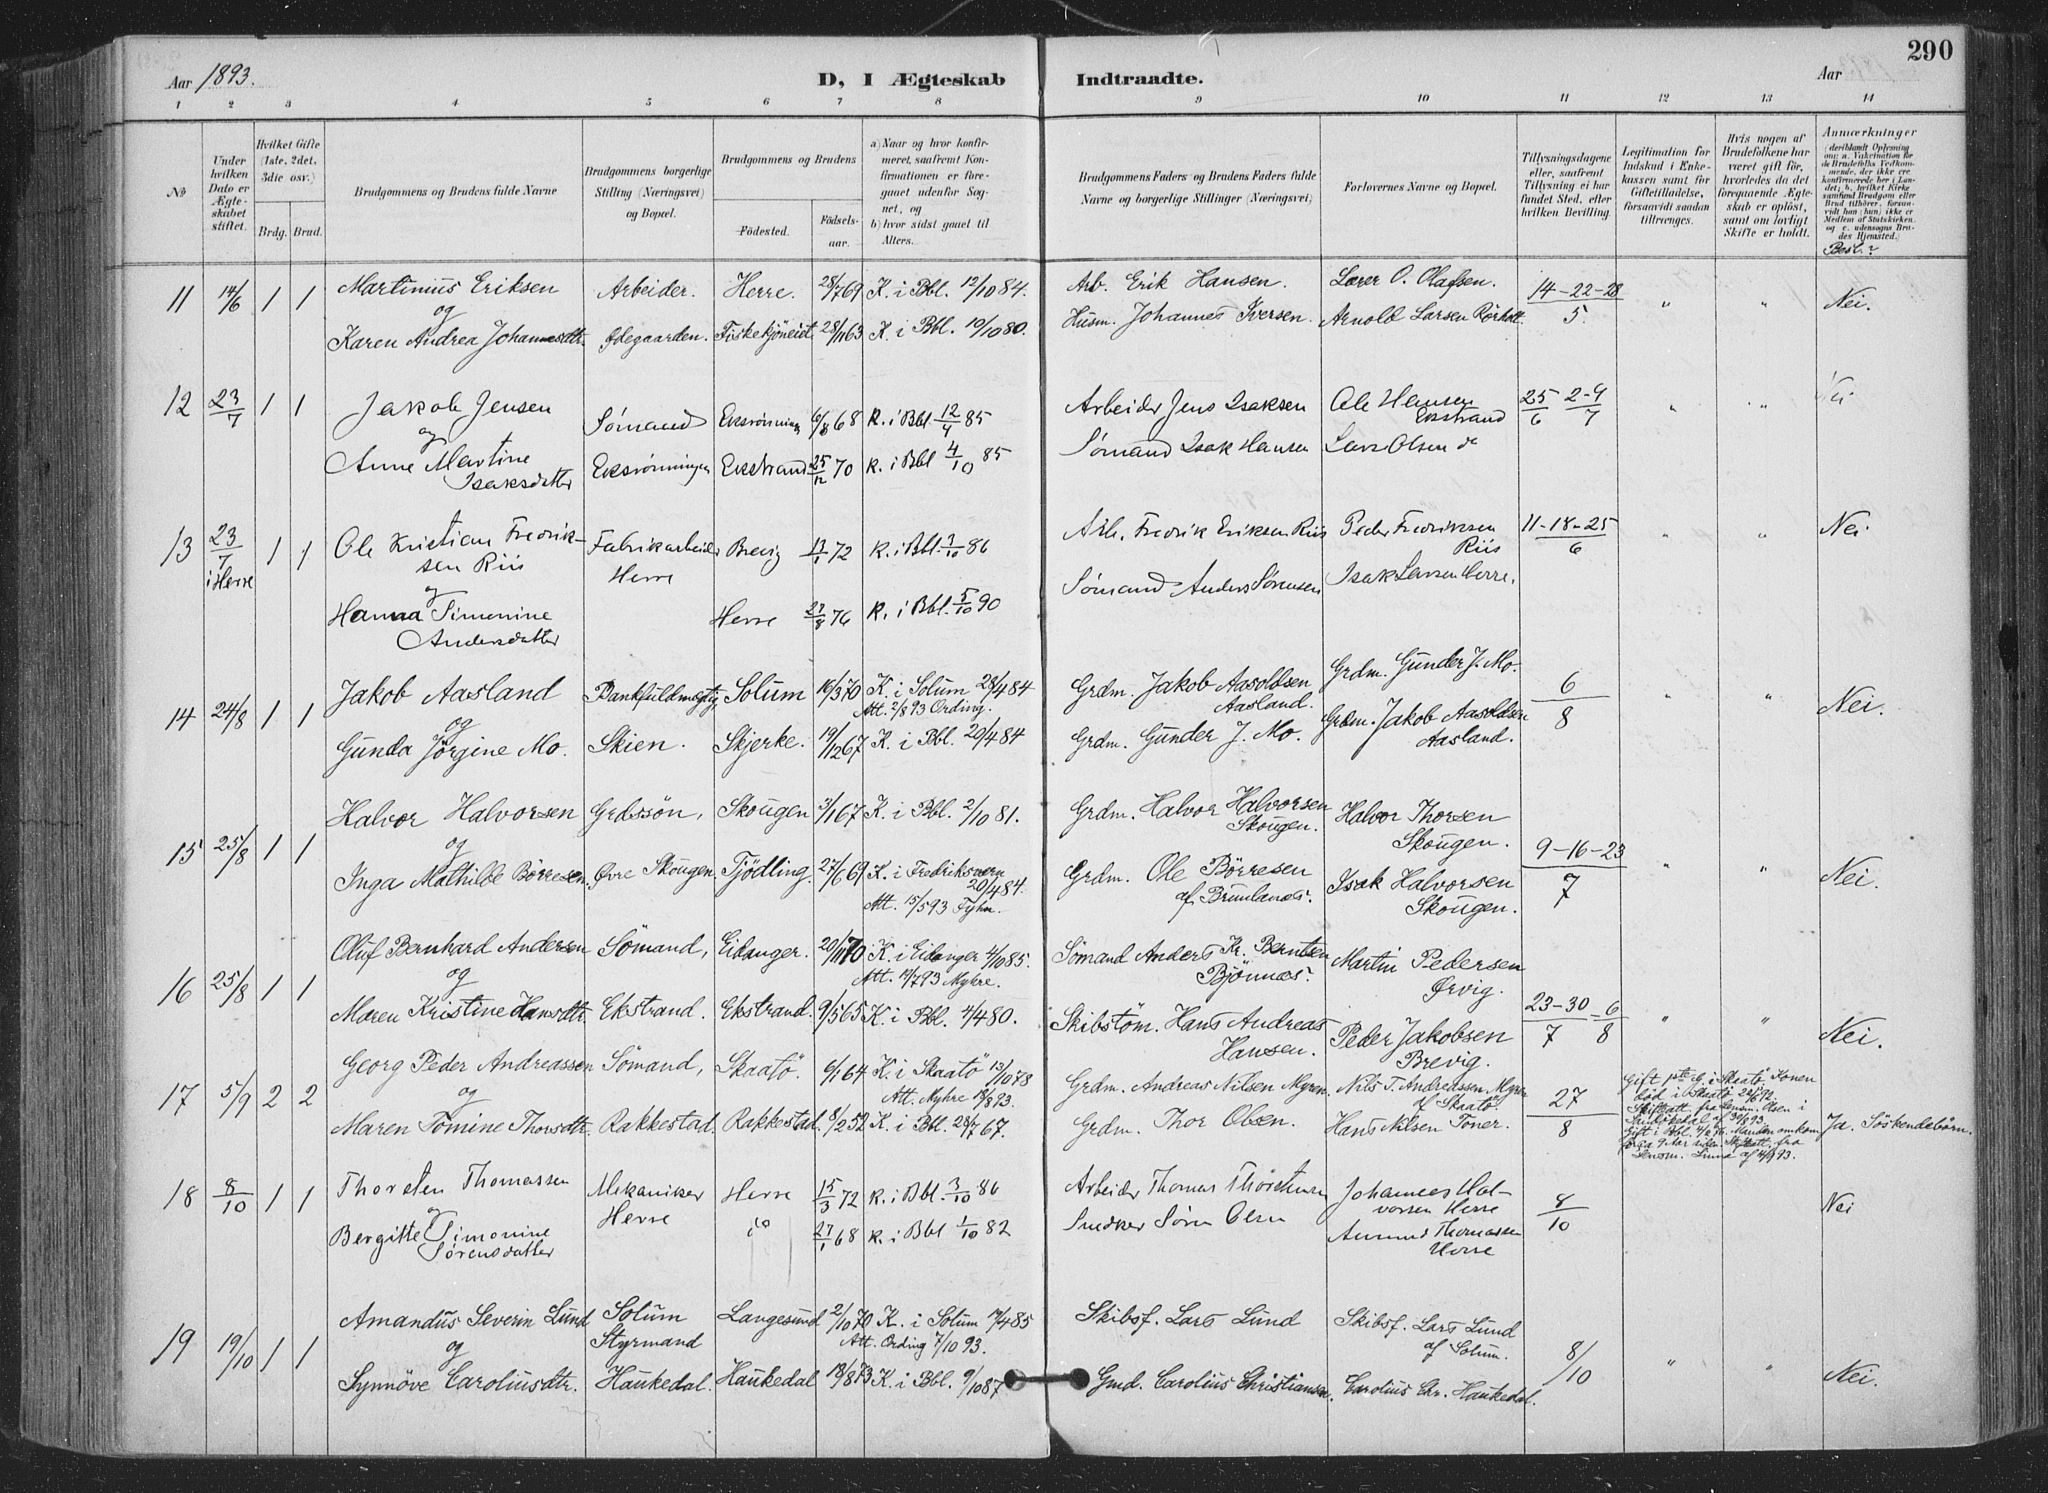 290
Aar 1893.
D, I Ægteskab Indtraadte.
Aar
1 2 3 4 5 6 7 8 9 10 11 12 13 14
No
Under hvilken Dato er Ægteskabet stiftet.
Hvilket Gifte (1ste, 2det, 3die osv.)
Brdg. Brud.
Brudgommens og Brudens fulde Navne
Brudgommens borgerlige Stilling (Næringsvei) og Bopæl.
Brudgommens og Brudens
Födested. Födselsaar.
a) Naar og hvor konfirmeret, saafremt Konfirmationen er foregaaet udenfor Sognet, og
b) hvor sidst gaaet til Alters.
Brudgommens Faders og Brudens Faders fulde Navne og borgerlige Stillinger (Næringsvei)
Forlovernes Navne og Bopæl.
Tillysningsdagene eller, saafremt Tillysning ei har fundet Sted, efter hvilken Bevilling.
Legitimation for Indskud i Enkekassen samt for Giftetilladelse, forsaavidt saadan tiltrænges.
Hvis nogen af Brudefolkene har været gift før, hvorledes da det foregaaende Ægteskab er oplöst, samt om lovligt Skifte er holdt.
Anmærkninger (deriblandt Oplysning om: a. Vakcination for de Brudefolks Vedkommende, der ikke ere konfirmerede her i Landet; b. hvilket Kirkesamfund Brudgom eller Brud tilhörer, forsaavidt han (hun) ikke er Medlem af Statskirken, og c. udensogns Brudes Hjemsted.)
Besl.?
11 14/6 1 1 Martinius Eriksen Arbeider. Herre. 28/7 69 K. i Bbl. 12/10 84. Arb. Erik Hansen. Lærer O. Olafsen. 14-22-28/5 " " Nei.
og
Karen Andrea Johannesdtr. Ødegaarden. Fiskekjöneidt 28/11 63 K. i Bbl. 10/10 80. Husm. Johannes Iversen. Arnold Larsen Rörholt.
12 23/7 1 1 Jakob Jensen Sømand Eksrønningen 6/8 68 k. i Bbl 12/4 85 Arbeider Jens Isaksen Ole Hansen Ekstrand 25/6 2-9/7 " " Nei
og
Anne Martine Isaksdatter Eksrønningen Ekstrand 25/12 70 k. i Bbl 4/10 85 Sømand Isak Hansen Lars Olsen do
13 23/7 i Herre 1 1 Ole Kristian Fredriksen Riis Fabrikarbeider Herre Brevig 13/1 72 k. i Bbl. 3/10 86 Arb. Fredrik Eriksen Riis Peder Fredriksen Riis 11-18-25/6 " " Nei
og
Hanna Simonine Andersdatter Herre 27/8 76 k. i Bbl. 5/10 90 Sømand Anders Sørensen Isak Larsen Herre.
14 24/8 1 1 Jakob Aasland Bankfuldmægtig Solum 16/3 70 K. i Solum 28/4 84 Att. 2/8 93 Ording. Grdm. Jakob Aasoldsen Aasland. Grdm. Gunder J. Mo. 6/8 " " Nei.
og
Gunda Jörgine Mo. Skien. Skjerke. 19/12 67 K. i Bbl. 20/4 84 Grdm. Gunder J. Mo. Grdm. Jakob Aasoldsen Aasland.
15 25/8 1 1 Halvor Halvorsen Grdssön, Skougen 3/1 67 K. i Bbl. 2/10 81. Grdm. Halvor Halvorsen Skougen. Halvor Thorsen Skougen. 9-16-23/7 " " Nei.
og
Inga Mathilde Börresen. Øvre Skougen. Tjödling. 27/6 69 K. i Fredriksværn 20/4 84. Att. 15/5 93 Fyhn. Grdm. Ole Börresen af Brunlanæs. Isak Halvorsen Skougen.
16 25/8 1 1 Oluf Bernhard Andersen Sömand, Eidanger. 20/11 70 K. i Eidanger 4/10 85. Att. 14/7 93 Myhre. Sömand Anders Kr. Berntsen Bjönnæs. Martin Pedersen Ørvig. 23-30/7 - 6/8 " " Nei.
og
Maren Kristine Hansdtr. Ekstrand. Ekstrand. 9/5 65 K. i Bbl. 4/4 80. Skibstöm. Hans Andreas Hansen. Peder Jakobsen Brevig.
17 5/9 2 2 Georg Peder Andreassen Sömand, Skaatö. 6/1 64 K. i Skaatö 13/10 78 Att. Myhre 18/8 93. Grdm. Andreas Nilsen Myren Nils T. Andreassen Myren af Skaatö. 27/8
og
Maren Tomine Thorsdtr. Rakkestad. Rakkestad. 8/2 52 K. i Bbl. 28/7 67. Grdm. Thor Olsen. Hans Nilsen Töner.
Gift 1ste G. i Skaatö. Konen död i Skaatö 22/6 92. Skifteatt. fra Lensm. Olsen i Sandökedal af 30/8 93. Gift i Bbl. Manden omkom for ca 9 Aar siden. Skifteatt. fra Lensm. Linna af 4/9 93.
Ja. Söskendebörn.
18 8/10 1 1 Thorsten Thomassen Mekaniker Herre Herre 15/3 72 k. i Bbl. 3/10 86 Arbeider Thomas Thorstensen Johannes Halvorsen Herre 8/10 Nei
og
Bergitte Simonine Sørensdatter do 27/1 68 k. i Bbl 1/10 82 Snedker Søren Olsen Amund Thomassen Herre
19 19/10 1 1 Amandus Severin Lund Solum Styrmand Langesund 2/10 70 K. i Solum 19/4 85 Att. Ording 7/10 93. Skibsf. Lars Lund Skibsf. Lars Lund af Solum. 8/10 " " Nei.
og
Synnöve Caroliusdtr. Haukedal. Haukedal 18/8 73 K. i Bbl. 9/10 87 Gmd. Carolius Christiansen. Carolius Chr. Haukedal.